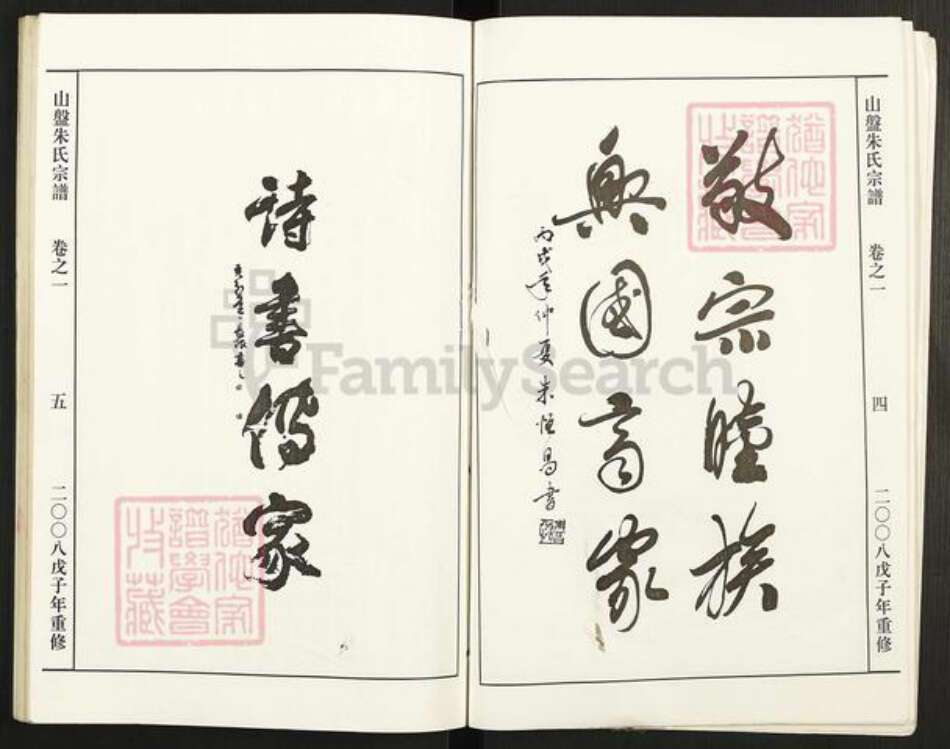 山盤朱氏宗譜 卷之一 四 二〇〇八戊子年重修
敬宗睦族
興國齊家
丙戌年仲夏朱恒昌書
詩書傳家
山盤朱氏宗譜 卷之一 五 二〇〇八戊子年重修
譜學會
收藏
譜學會
收藏
FamilySearch